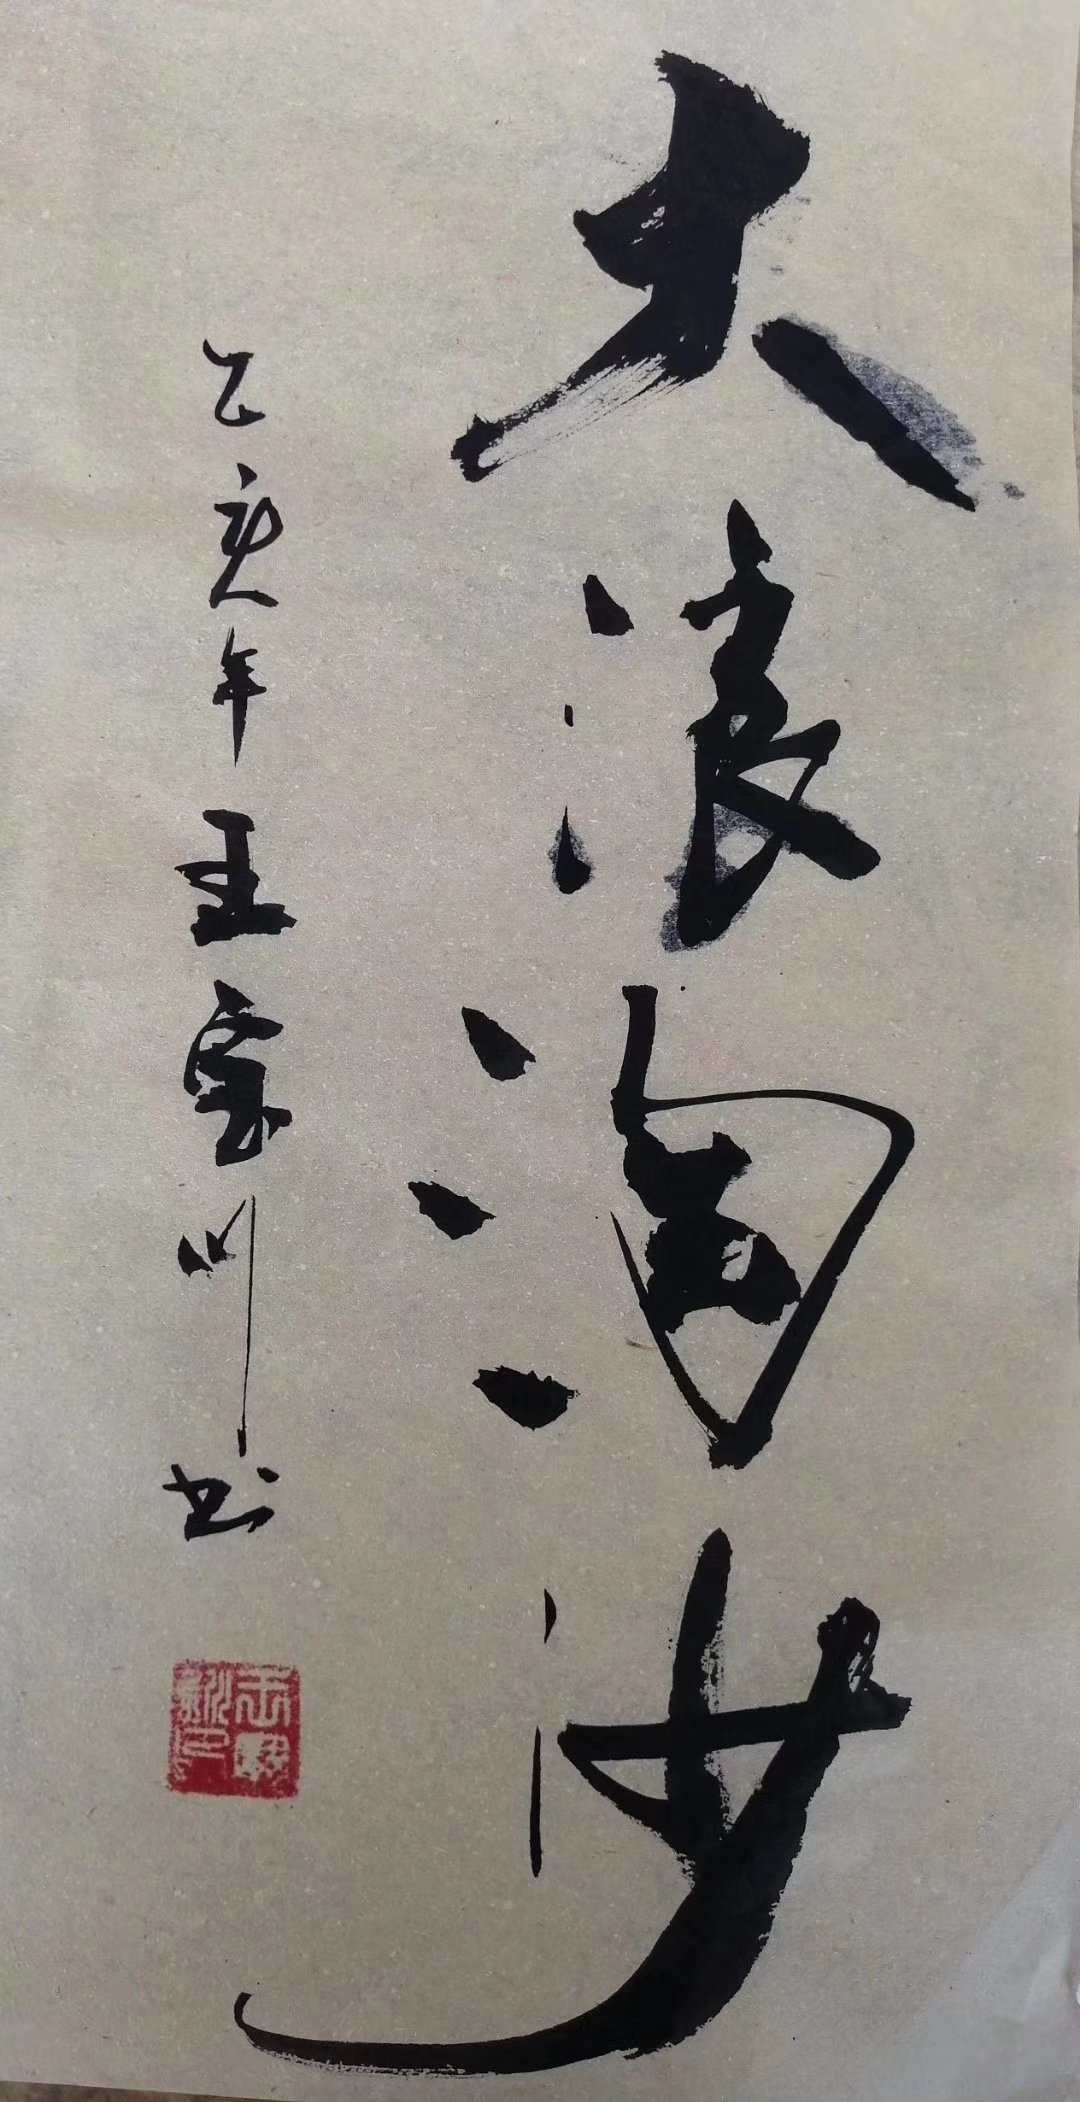 大浪淘沙
己亥年 王家川书